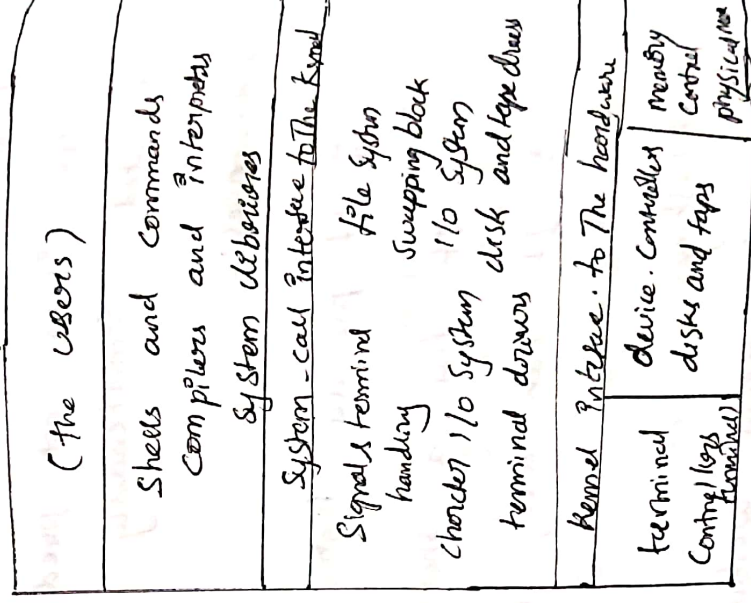 (the users)
Shells and commands
Compilers and interpreters
System libraries
System-call interface to The Kernel
Signals terminal
handling
Charcter I/O System
terminal drivers
file System
Swapping block
I/O System
disk and tape drives
Kernel interface to The hardware
terminal
Controllers
terminals
device Controllers
disks and taps
memory
Control
physical